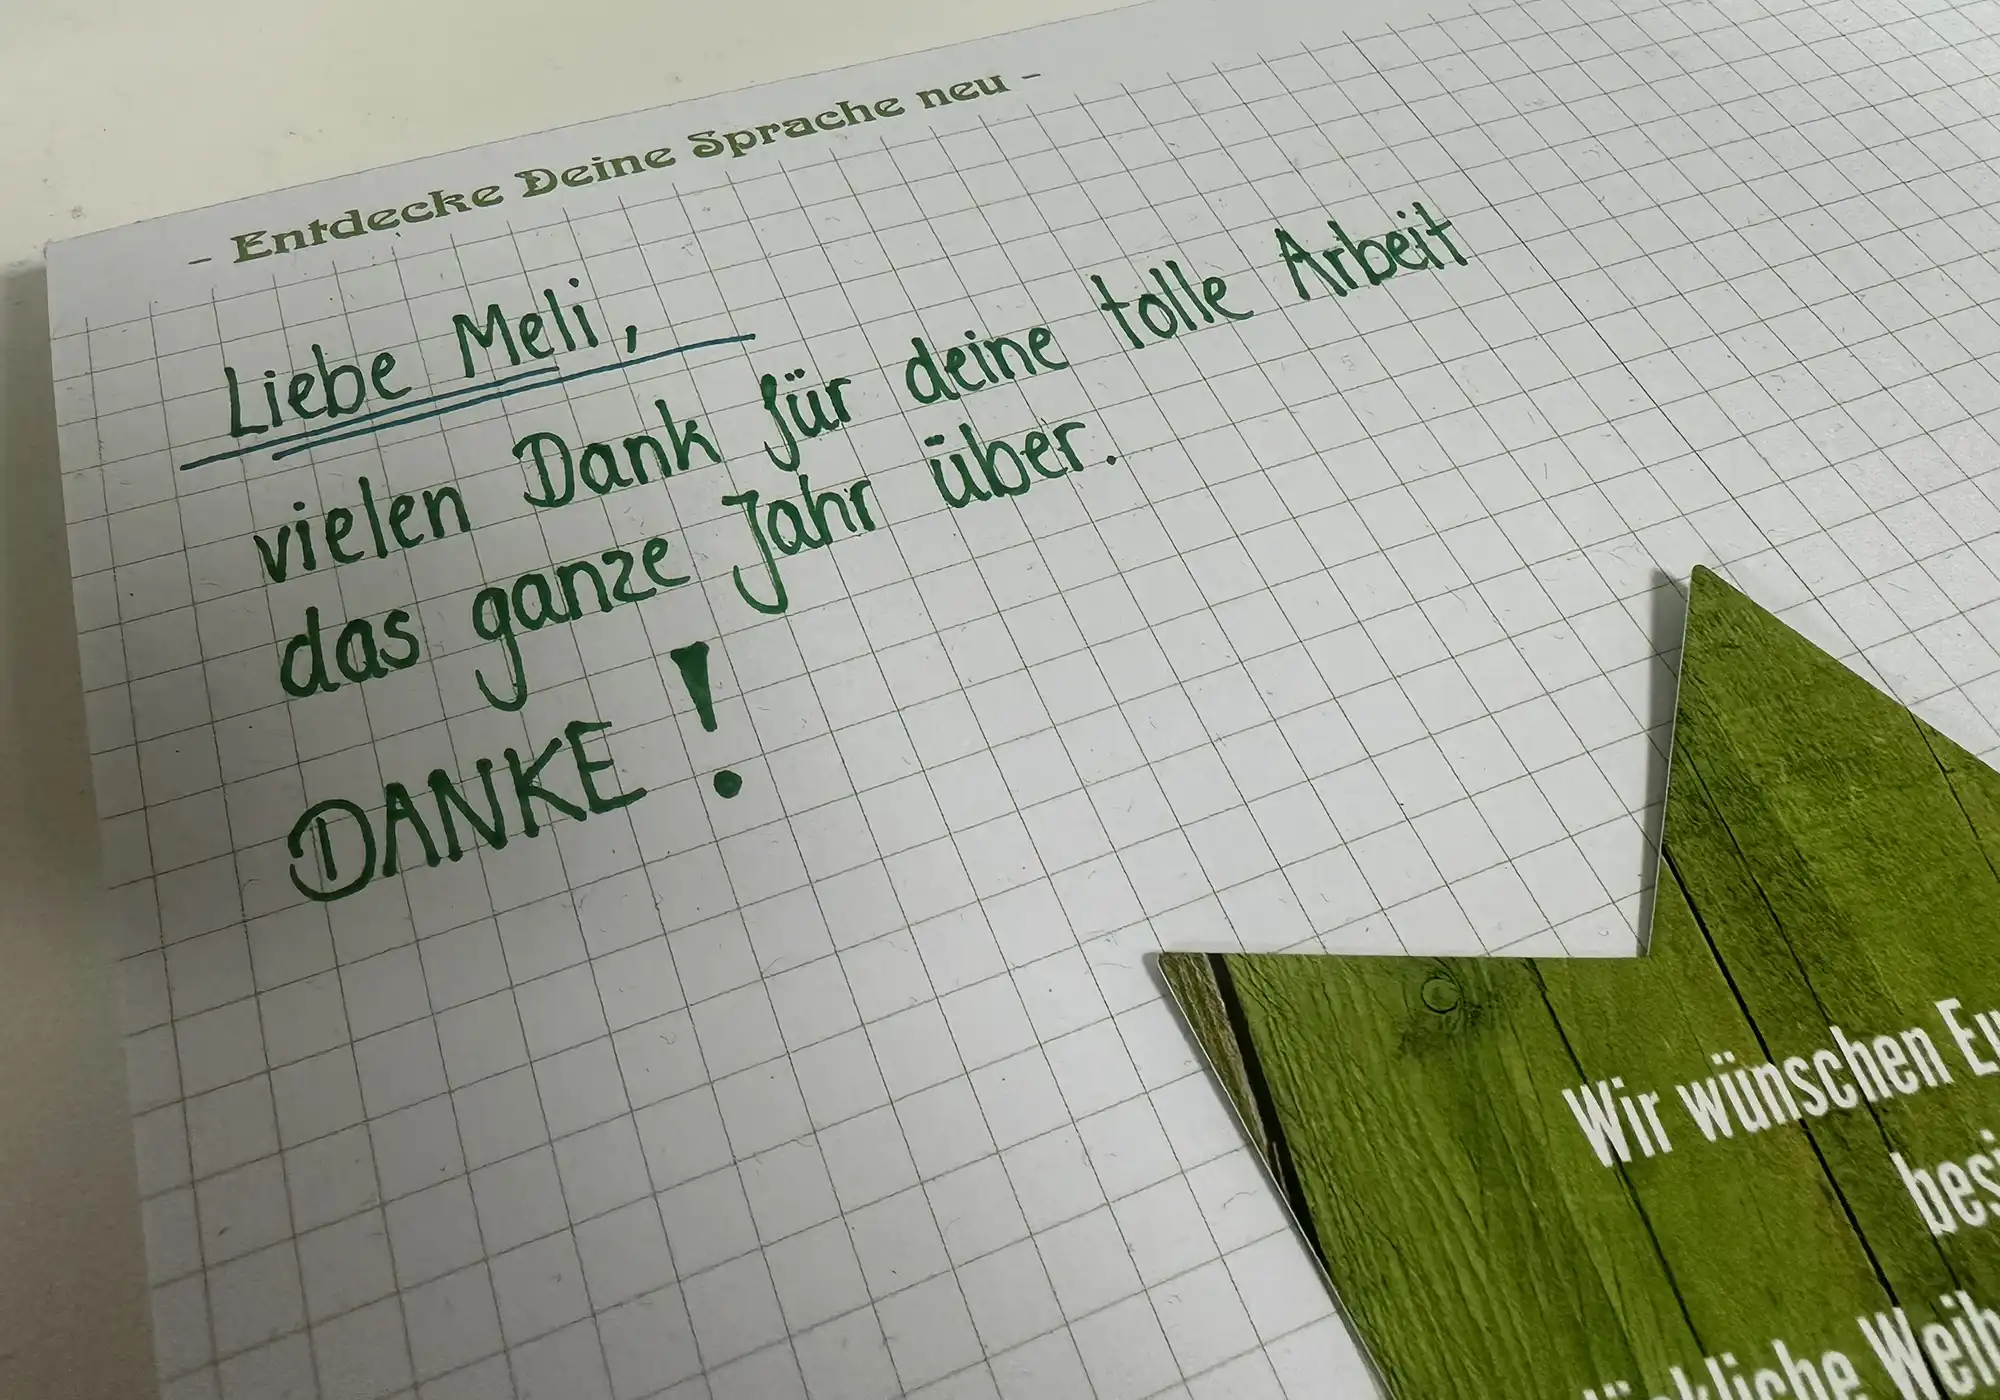 - Entdecke Deine Sprache neu -
Liebe Meli,
vielen Dank für deine tolle Arbeit
das ganze Jahr über.
DANKE!
Wir wünschen
Weih